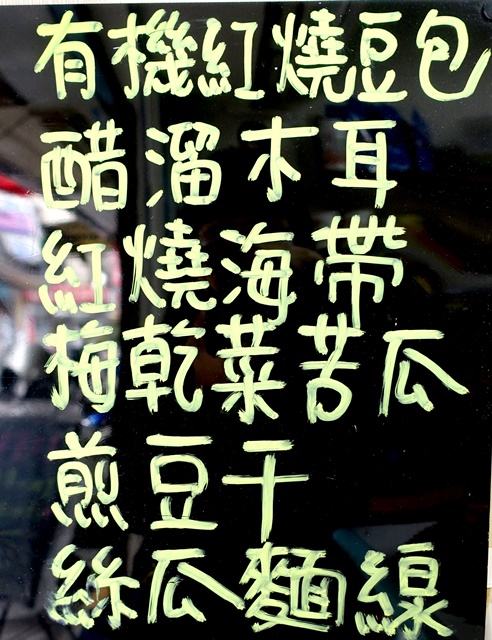 有機紅燒豆包
醋溜木耳
紅燒海帶
梅乾菜苦瓜
煎豆干
絲瓜麵線